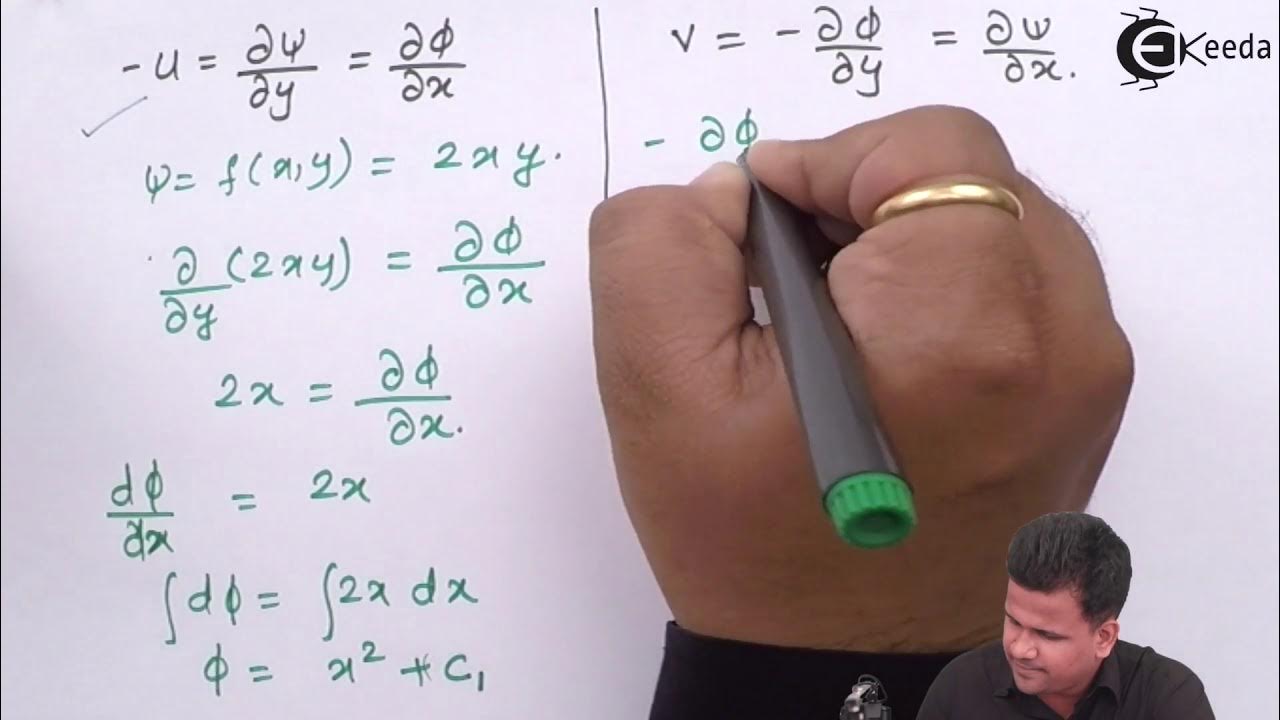 - u = ∂ψ/∂y = ∂ϕ/∂x
ψ = f(x,y) = 2xy.
∂/∂y (2xy) = ∂ϕ/∂x
2x = ∂ϕ/∂x.
dϕ/dx = 2x
∫dϕ = ∫2x dx
ϕ = x² + C₁
v = - ∂ϕ/∂y = ∂ψ/∂x.
- ∂ϕ
Keeda